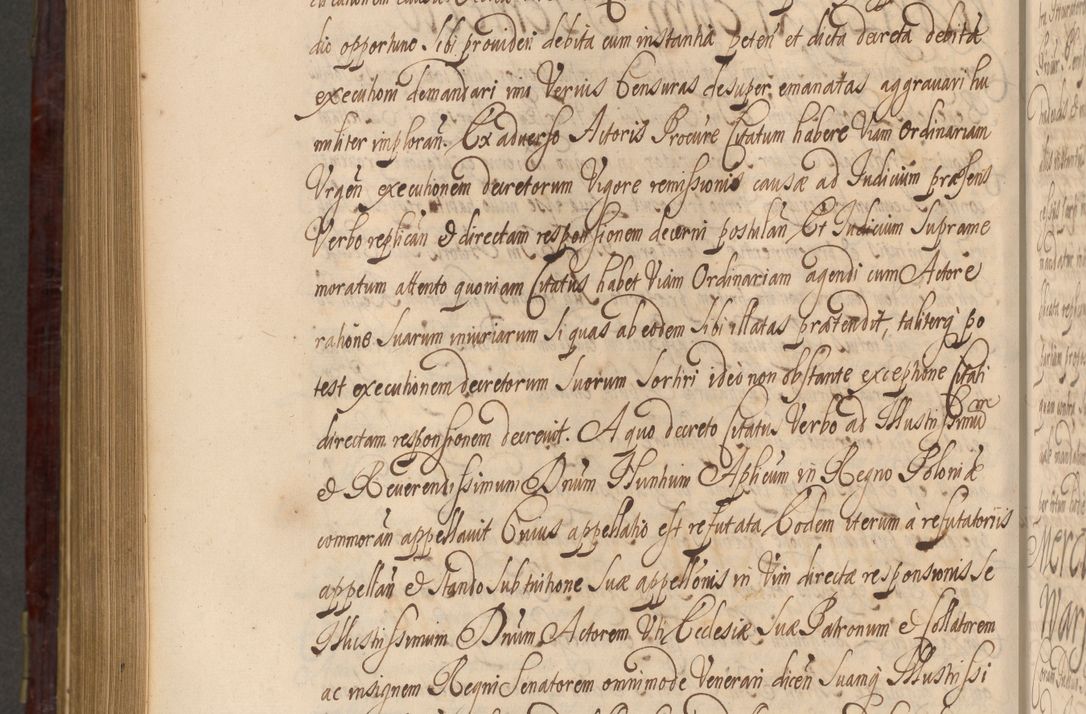 dio opportuno sibi provideri debita cum instantia peten et dicta decreta debitæ
executioni demandari imo Verius Censuras desuper emanatas aggravari hu
militer imploran. Ex adverso Actoris Procure Citatum habere Viam Ordinariam
Urgen executionem decretorum Vigore remissionis causæ ad Judicium præsens
Verbo replican & directam responsionem decerni postulan Et Judicium Supra me
moratum attento quoniam Citatus habet Viam Ordinariam agendi cum Actore
ratione Suarum iniuriarum si quas ab eodem sibi illatas prætendit, taliterq po
test executionem decretorum suorum sortiri ideò non obstante exceptione Citati
directam responsionem decrevit. A quo decreto Citatus Verbo ad Illustrissimum
& Reverendissimum Dnum Nuntium Aplicum in Regno Poloniæ
commoran appellavit Cuius appellatio est refutata Eodem iterum à refutatoriis
appellan & Stando Sub tuitione suæ appellonis in Vim directæ responsionis se
Illustrissimum Dnum Actorem Uti Ecclesiæ suæ Patronum & Collatorem
ac insignem Regni Senatorem omnimode Venerari dicen Suamq Illustrissi